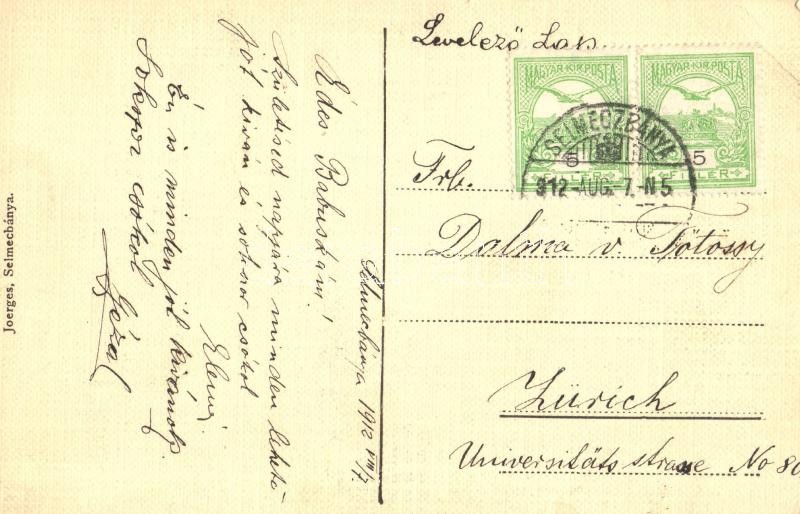 Levelező Lap.
MAGYAR·KIR·POSTA
5
FILLÉR
MAGYAR·KIR·POSTA
5
FILLÉR
SELMECZBÁNYA
912-AUG.-7.-N5
Frl.
Dalma v. Tótossy
Zürich
Universitäts strasse No 80
Selmecbánya 1912 VIII/7.
Édes Babuskám!
Születésed napjára minden lehető
jót kiván és sokszor csókol
Elemi.
Én is minden jót kivánok
Sokszor csókol
Gézal
Joerges, Selmecbánya.